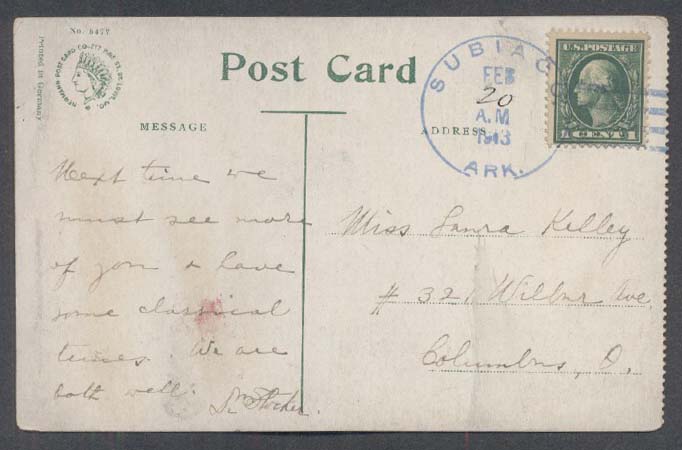 No. 6477
Printed in Germany
Post Card
MESSAGE
ADDRESS
SUBIACO
FEB
20
A.M
1913
ARK.
U.S. POSTAGE
1 CENT 1
Next time we
must see more
of you & have
some classical
times. We are
both well.
Miss Laura Kelley
# 321 Wilbur Ave.
Columbus, O.